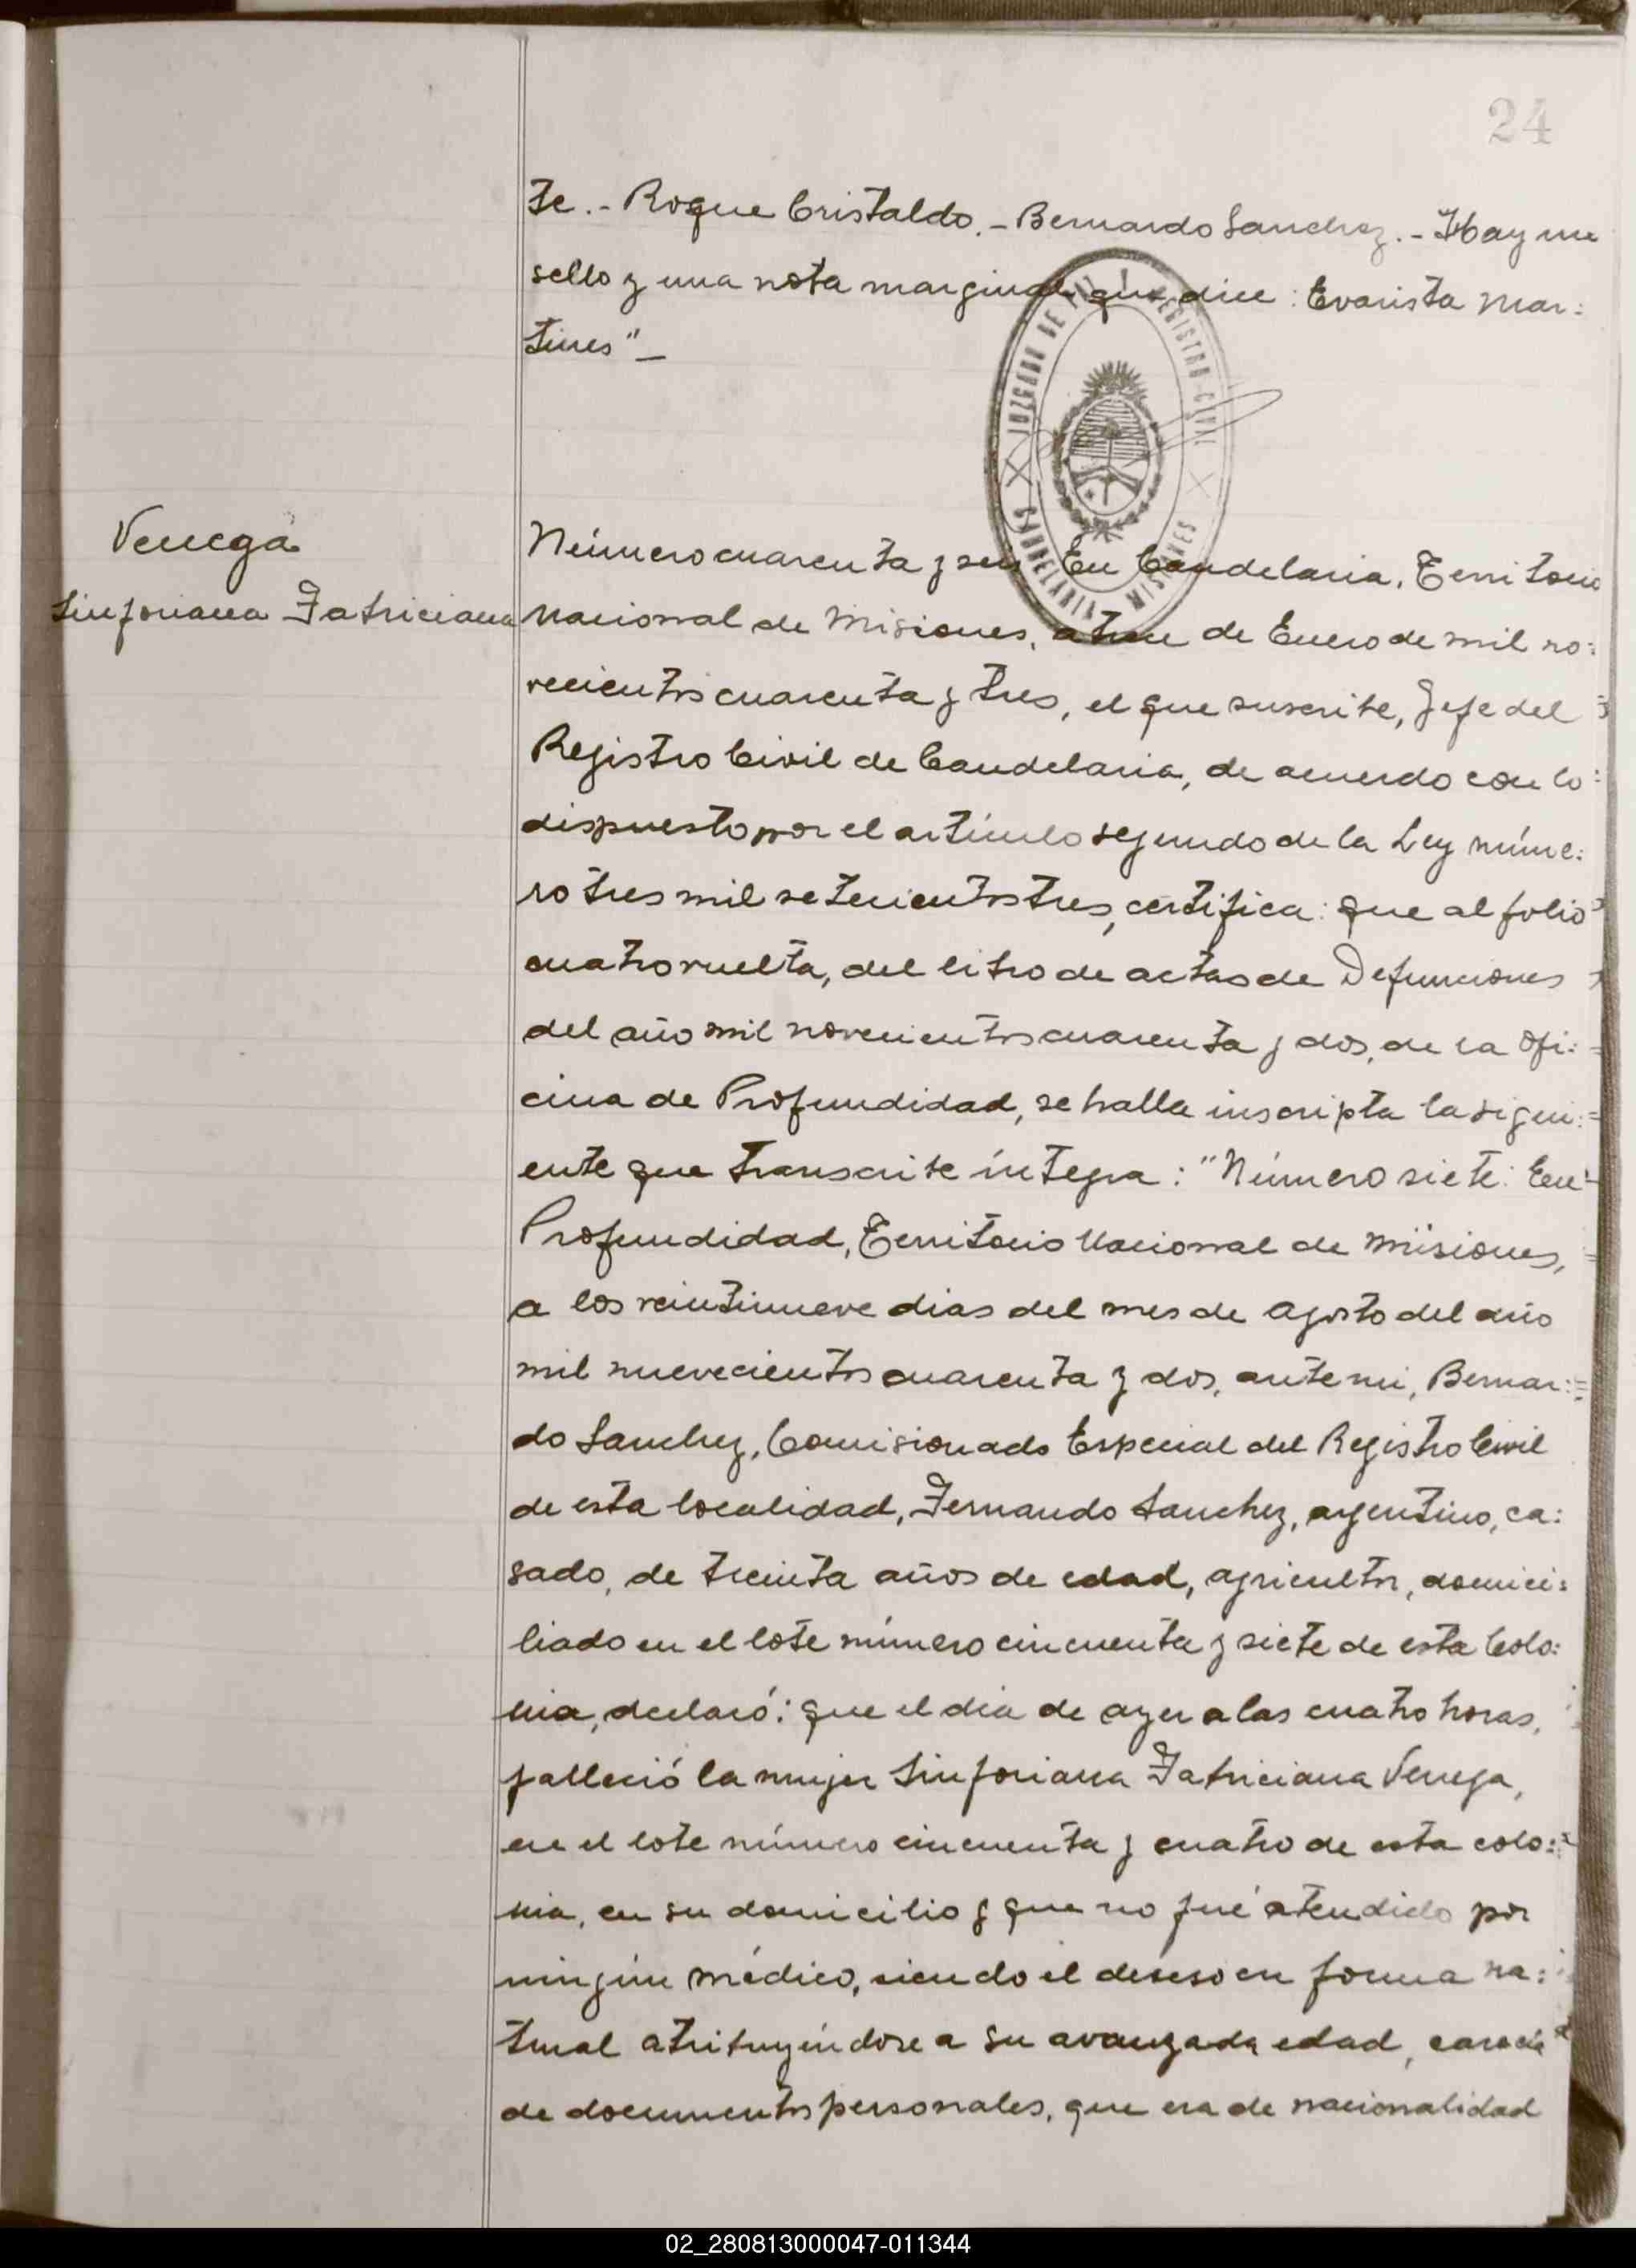 24
te.- Roque Cristaldo.- Bernardo Sanchez.- Hay un
sello y una nota marginal que dice: Evarista Mar:
tines"_
JUZGADO DE PAZ Y REGISTRO CIVIL
CANDELARIA MISIONES
Venega
Sinforiana Fatriciana
Número cuarenta y seis En Candelaria, Territorio
Nacional de Misiones, a trece de Enero de mil no:
vecientos cuarenta y tres, el que suscribe, Jefe del
Registro Civil de Candelaria, de acuerdo con lo
dispuesto por el artículo segundo de la Ley núme:
ro tres mil setecientos tres, certifica: que al folio
cuatro vuelta, del libro de actas de Defunciones
del año mil novecientos cuarenta y dos, de la Ofi:
cina de Profundidad, se halla inscripta la sigui:
ente que transcribe íntegra: "Número siete: En
Profundidad, Territorio Nacional de Misiones,
a los veintinueve dias del mes de Agosto del año
mil nuevecientos cuarenta y dos, ante mi, Bernar:
do Sanchez, Comisionado Especial del Registro Civil
de esta localidad, Fernando Sanchez, argentino, ca:
sado, de treinta años de edad, agricultor, domici:
liado en el lote número cincuenta y siete de esta Colo:
nia, declaró: que el dia de ayer a las cuatro horas,
falleció la mujer Sinforiana Fatriciana Venega,
en el lote número cincuenta y cuatro de esta colo:
nia, en su domicilio y que no fué atendido por
ningún médico, siendo el deseso en forma na:
tural atribuyéndose a su avanzada edad, carecía
de documentos personales, que era de nacionalidad
02_280813000047-011344